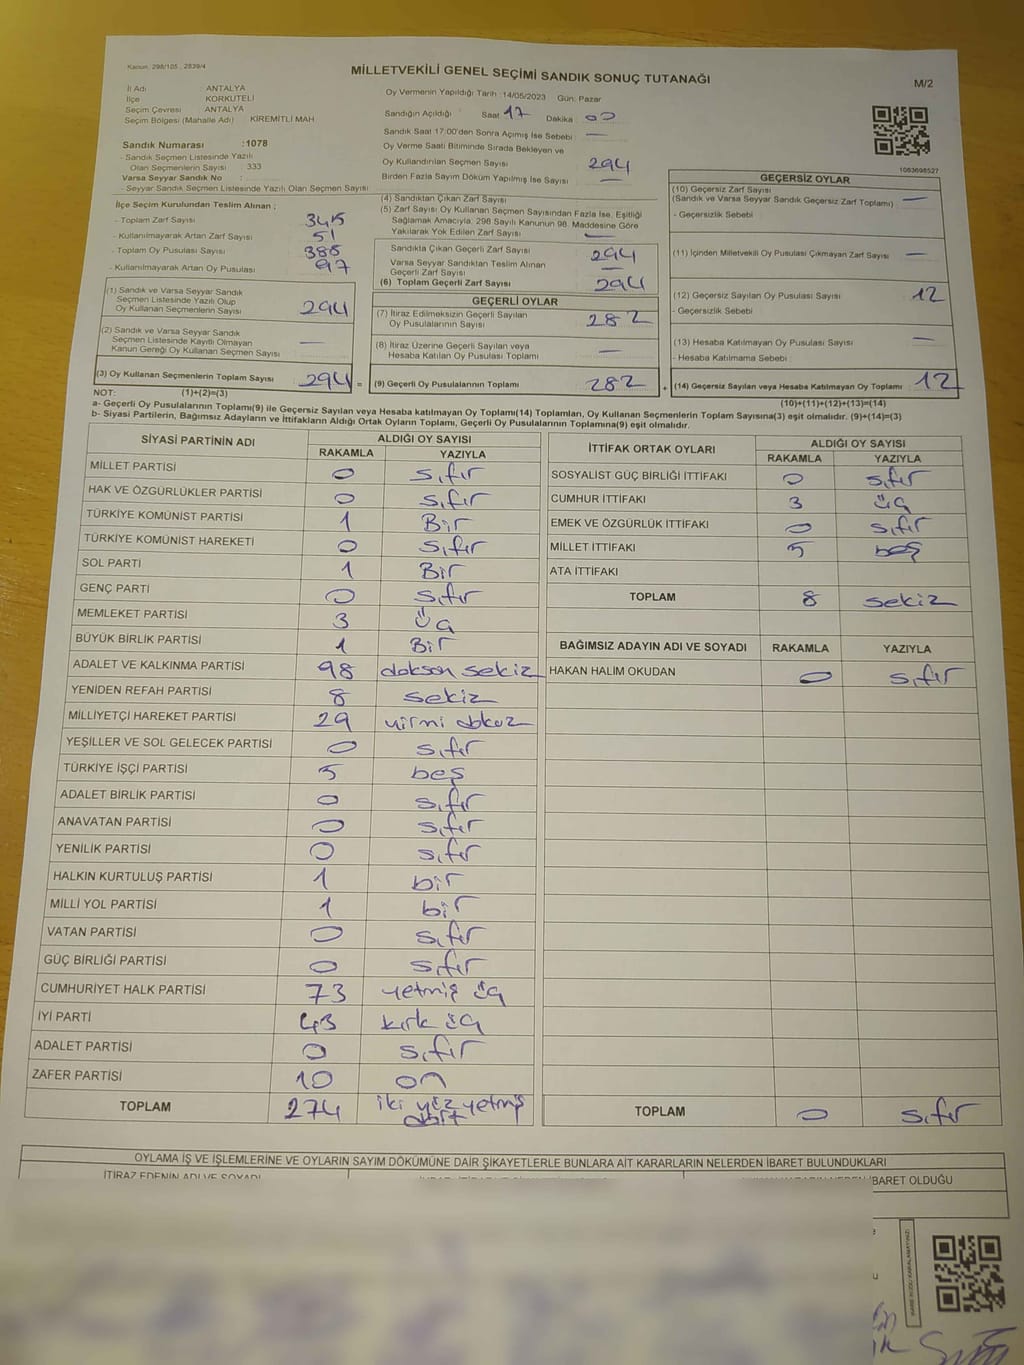 Kanun. 298/105 , 2839/4
MİLLETVEKİLİ GENEL SEÇİMİ SANDIK SONUÇ TUTANAĞI
M/2
İl Adı : ANTALYA
İlçe : KORKUTELİ
Seçim Çevresi : ANTALYA
Seçim Bölgesi (Mahalle Adı) : KİREMİTLİ MAH
Sandık Numarası : 1078
- Sandık Seçmen Listesinde Yazılı
Olan Seçmenlerin Sayısı : 333
Varsa Seyyar Sandık No :
- Seyyar Sandık Seçmen Listesinde Yazılı Olan Seçmen Sayısı :
Oy Vermenin Yapıldığı Tarih :14/05/2023 Gün: Pazar
Sandığın Açıldığı Saat 17 Dakika 00
Sandık Saat 17:00'den Sonra Açımış İse Sebebi : —
Oy Verme Saati Bitiminde Sırada Bekleyen ve
Oy Kullandırılan Seçmen Sayısı 294
Birden Fazla Sayım Döküm Yapılmış İse Sayısı —
1063698527
İlçe Seçim Kurulundan Teslim Alınan ;
- Toplam Zarf Sayısı 345
- Kullanılmayarak Artan Zarf Sayısı 51
- Toplam Oy Pusulası Sayısı
- Kullanılmayarak Artan Oy Pusulası
(1) Sandık ve Varsa Seyyar Sandık
Seçmen Listesinde Yazılı Olup
Oy Kullanan Seçmenlerin Sayısı 294
(2) Sandık ve Varsa Seyyar Sandık
Seçmen Listesinde Kayıtlı Olmayan
Kanun Gereği Oy Kullanan Seçmen Sayısı —
(3) Oy Kullanan Seçmenlerin Toplam Sayısı 294 =
(4) Sandıktan Çıkan Zarf Sayısı
(5) Zarf Sayısı Oy Kullanan Seçmen Sayısından Fazla İse, Eşitliği
Sağlamak Amacıyla; 298 Sayılı Kanunun 98. Maddesine Göre
Yakılarak Yok Edilen Zarf Sayısı —
Sandıkta Çıkan Geçerli Zarf Sayısı 294
Varsa Seyyar Sandıktan Teslim Alınan
Geçerli Zarf Sayısı —
(6) Toplam Geçerli Zarf Sayısı 294
GEÇERLİ OYLAR
(7) İtiraz Edilmeksizin Geçerli Sayılan
Oy Pusulalarının Sayısı 282
(8) İtiraz Üzerine Geçerli Sayılan veya
Hesaba Katılan Oy Pusulası Toplamı —
(9) Geçerli Oy Pusulalarının Toplamı 282 +
GEÇERSİZ OYLAR
(10) Geçersiz Zarf Sayısı
(Sandık ve Varsa Seyyar Sandık Geçersiz Zarf Toplamı) —
- Geçersizlik Sebebi
(11) İçinden Milletvekili Oy Pusulası Çıkmayan Zarf Sayısı —
(12) Geçersiz Sayılan Oy Pusulası Sayısı 12
- Geçersizlik Sebebi
(13) Hesaba Katılmayan Oy Pusulası Sayısı —
- Hesaba Katılmama Sebebi
(14) Geçersiz Sayılan veya Hesaba Katılmayan Oy Toplamı 12
NOT: (1)+(2)=(3)
(10)+(11)+(12)+(13)=(14)
a- Geçerli Oy Pusulalarının Toplamı(9) ile Geçersiz Sayılan veya Hesaba katılmayan Oy Toplamı(14) Toplamları, Oy Kullanan Seçmenlerin Toplam Sayısına(3) eşit olmalıdır. (9)+(14)=(3)
b- Siyasi Partilerin, Bağımsız Adayların ve İttifakların Aldığı Ortak Oyların Toplamı, Geçerli Oy Pusulalarının Toplamına(9) eşit olmalıdır.
SİYASİ PARTİNİN ADI ALDIĞI OY SAYISI
RAKAMLA YAZIYLA
MİLLET PARTİSİ 0 sıfır
HAK VE ÖZGÜRLÜKLER PARTİSİ 0 sıfır
TÜRKİYE KOMÜNİST PARTİSİ 1 Bir
TÜRKİYE KOMÜNİST HAREKETİ 0 sıfır
SOL PARTİ 1 Bir
GENÇ PARTİ 0 sıfır
MEMLEKET PARTİSİ 3 üç
BÜYÜK BİRLİK PARTİSİ 1 Bir
ADALET VE KALKINMA PARTİSİ 98 doksan sekiz
YENİDEN REFAH PARTİSİ 8 sekiz
MİLLİYETÇİ HAREKET PARTİSİ 29 yirmi dokuz
YEŞİLLER VE SOL GELECEK PARTİSİ 0 sıfır
TÜRKİYE İŞÇİ PARTİSİ 5 beş
ADALET BİRLİK PARTİSİ 0 sıfır
ANAVATAN PARTİSİ 0 sıfır
YENİLİK PARTİSİ 0 sıfır
HALKIN KURTULUŞ PARTİSİ 1 bir
MİLLİ YOL PARTİSİ 1 bir
VATAN PARTİSİ 0 sıfır
GÜÇ BİRLİĞİ PARTİSİ 0 sıfır
CUMHURİYET HALK PARTİSİ 73 yetmiş üç
İYİ PARTİ 43 kırk üç
ADALET PARTİSİ 0 sıfır
ZAFER PARTİSİ 10 on
TOPLAM 274 iki yüz yetmiş dört
İTTİFAK ORTAK OYLARI ALDIĞI OY SAYISI
RAKAMLA YAZIYLA
SOSYALİST GÜÇ BİRLİĞİ İTTİFAKI 0 sıfır
CUMHUR İTTİFAKI 3 üç
EMEK VE ÖZGÜRLÜK İTTİFAKI 0 sıfır
MİLLET İTTİFAKI 5 beş
ATA İTTİFAKI
TOPLAM 8 sekiz
BAĞIMSIZ ADAYIN ADI VE SOYADI RAKAMLA YAZIYLA
HAKAN HALİM OKUDAN 0 sıfır
TOPLAM 0 sıfır
OYLAMA İŞ VE İŞLEMLERİNE VE OYLARIN SAYIM DÖKÜMÜNE DAİR ŞİKAYETLERLE BUNLARA AİT KARARLARIN NELERDEN İBARET BULUNDUKLARI
İTİRAZ EDENİN ADI VE SOYADI
İBARET OLDUĞU